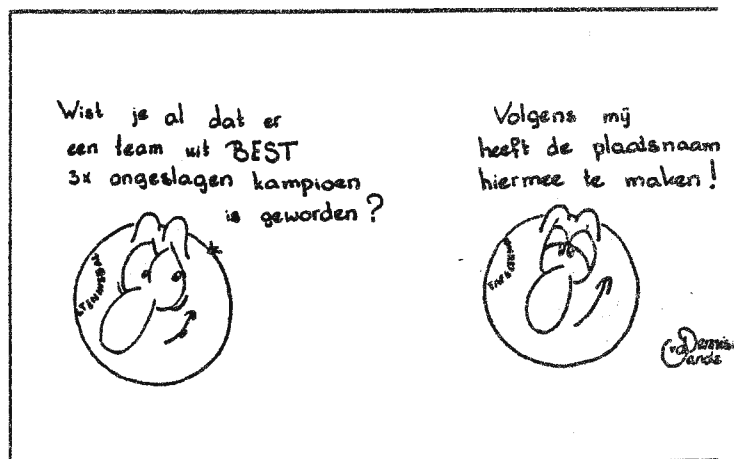 Wist je al dat er
een team uit BEST
3x ongeslagen kampioen
is geworden?
Volgens mij
heeft de plaatsnaam
hiermee te maken!
Dennis